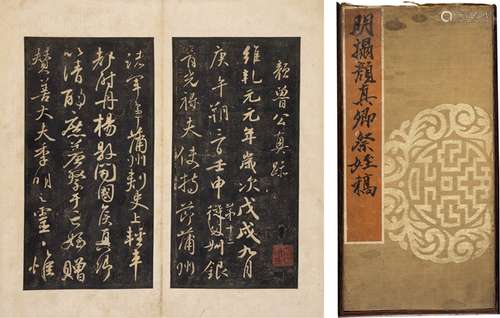 明搨顏真卿祭姪稿
顏魯公真跡
維乾元元年歲次戊戌九月
庚午朔三日壬申從父第十三叔銀
青光祿夫使持節蒲州
諸軍事蒲州刺史上輕車
都尉丹楊縣開國侯真卿
以清酌庶羞祭于亡姪贈
贊善大夫季明之靈惟